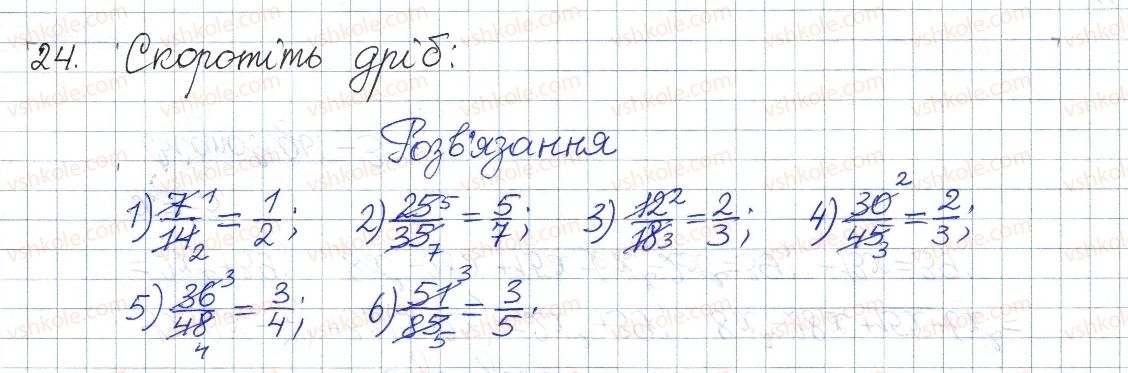 24. Скоротіть дріб:
Розв'язання
1) 7/14 1/2 = 1/2; 2) 25/35 5/7 = 5/7; 3) 12/18 2/3 = 2/3; 4) 30/45 2/3 = 2/3;
5) 36/48 3/4 = 3/4; 6) 51/85 3/5 = 3/5.
vshkole.com